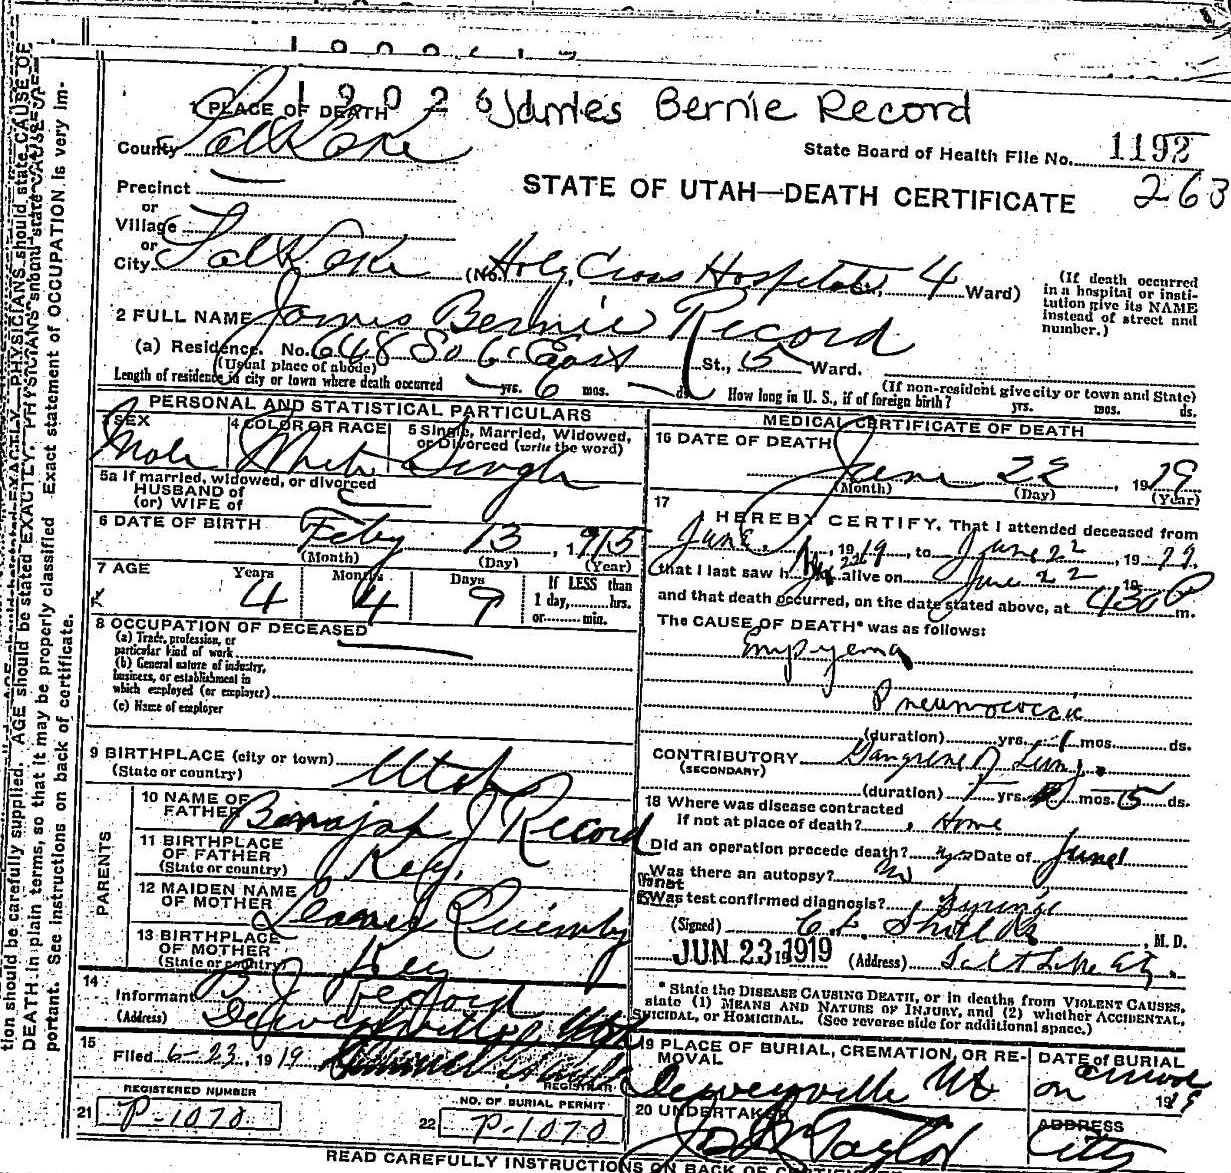 1 9 0 2 6
James Bernie Record
1 PLACE OF DEATH
County Salt Lake
State Board of Health File No. 1192
263
STATE OF UTAH—DEATH CERTIFICATE
Precinct
or
Village
or
City Salt Lake (No. Holy Cross Hospital St., 4 Ward)
(If death occurred in a hospital or institution give its NAME instead of street and number.)
2 FULL NAME James Bernie Record
(a) Residence. No. 648 So 6 East St., 5 Ward.
(Usual place of abode)
(If non-resident give city or town and State)
Length of residence in city or town where death occurred yrs. 6 mos. ds. How long in U. S., if of foreign birth? yrs. mos. ds.
PERSONAL AND STATISTICAL PARTICULARS
3 SEX Male
4 COLOR OR RACE White
5 Single, Married, Widowed, or Divorced (write the word) Single
5a If married, widowed, or divorced
HUSBAND of
(or) WIFE of
6 DATE OF BIRTH Feby 13, 1915
(Month) (Day) (Year)
7 AGE Years 4 Months 4 Days 9
If LESS than 1 day,......hrs. or......min.
8 OCCUPATION OF DECEASED
(a) Trade, profession, or particular kind of work
(b) General nature of industry, business, or establishment in which employed (or employer)
(c) Name of employer
9 BIRTHPLACE (city or town) Utah
(State or country)
PARENTS
10 NAME OF FATHER Binajah J Record
11 BIRTHPLACE OF FATHER Key.
(State or country)
12 MAIDEN NAME OF MOTHER Quimby
13 BIRTHPLACE OF MOTHER Key
(State or country)
14
Informant B J Record
(Address) Deweyville, Utah
15
Filed 6-23, 1919
REGISTRAR
REGISTERED NUMBER
21 P-1070
NO. OF BURIAL PERMIT
22 P-1070
MEDICAL CERTIFICATE OF DEATH
16 DATE OF DEATH June 22, 1919
(Month) (Day) (Year)
17
I HEREBY CERTIFY, That I attended deceased from
June 1, 1919, to June 22, 1919.
that I last saw him alive on June 22 19
and that death occurred, on the date stated above, at 430 P m.
The CAUSE OF DEATH* was as follows:
Empyema
Pneumococcic
(duration) yrs. 1 mos. ds.
CONTRIBUTORY Gangrene of Lung.
(SECONDARY)
(duration) yrs. mos. 15 ds.
18 Where was disease contracted
If not at place of death? Home
Did an operation precede death? yes Date of June 1
Was there an autopsy? No
What test confirmed diagnosis? Syringe
(Signed) Shields, M. D.
JUN 23 1919 (Address) Salt Lake City.
* State the DISEASE CAUSING DEATH, or in deaths from VIOLENT CAUSES,
state (1) MEANS AND NATURE OF INJURY, and (2) whether ACCIDENTAL,
SUICIDAL, or HOMICIDAL. (See reverse side for additional space.)
19 PLACE OF BURIAL, CREMATION, OR REMOVAL Deweyville Ut
DATE of BURIAL on arrival 1919
20 UNDERTAKER Taylor
ADDRESS City
READ CAREFULLY INSTRUCTIONS ON BACK OF CERTIFICATE
tion should be carefully supplied. AGE should be stated EXACTLY. PHYSICIANS should state CAUSE OF
DEATH in plain terms, so that it may be properly classified. Exact statement of OCCUPATION is very im-
portant. See instructions on back of certificate.